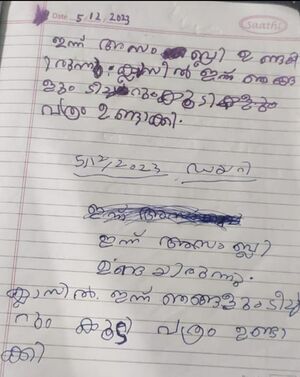 Date 5.12.2023
saathi
ഇന്ന് അസം ബ്ലി ഉണ്ടാ
യിരുന്നു. ക്ലാസിൽ ഇന്ന് ഞങ്ങ
ളും ടീച്ചറും കുട്ടികളും
പത്രം ഉണ്ടാക്കി.
5/12/2023 ഡയറി
ഇന്ന് അസംബ്ലി
ഉണ്ടായിരുന്നു.
ക്ലാസിൽ. ഇന്ന് ഞങ്ങളും ടീച്ച
റും കൂടി പത്രം ഉണ്ടാ
ക്കി